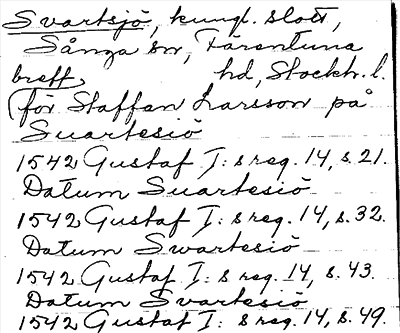 Svartsjö, kungl. slott,
Sånga sn, Färentuna
hd, Stockh. l.
breff
(för Staffan Larsson på
Suartesiö
1542 Gustaf I:s reg. 14, s. 21.
Datum Suartesiö
1542 Gustaf I:s reg. 14, s. 32.
Datum Swartesiö
1542 Gustaf I:s reg. 14, s. 43.
Datum Svartesiö
1542 Gustaf I:s reg. 14, s. 49.